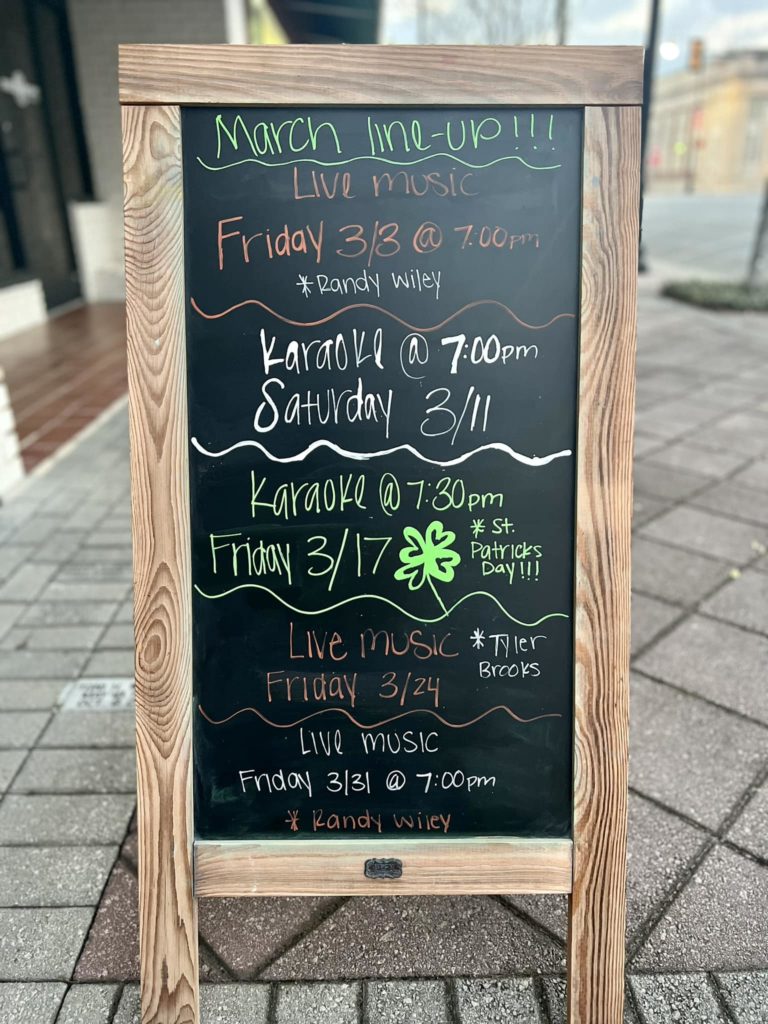 March line-up!!!
Live music
Friday 3/3 @ 7:00pm
*Randy Wiley
Karaoke @ 7:00pm
Saturday 3/11
Karaoke @ 7:30pm
Friday 3/17
* St.
Patricks
Day!!!
Live music
Friday 3/24
*Tyler
Brooks
Live music
Friday 3/31 @ 7:00pm
* Randy Wiley